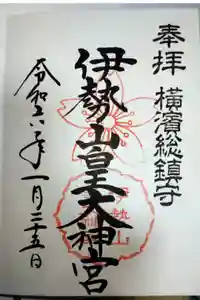 奉拝 横濱総鎮守
伊勢山皇大神宮
令和六年一月二十五日